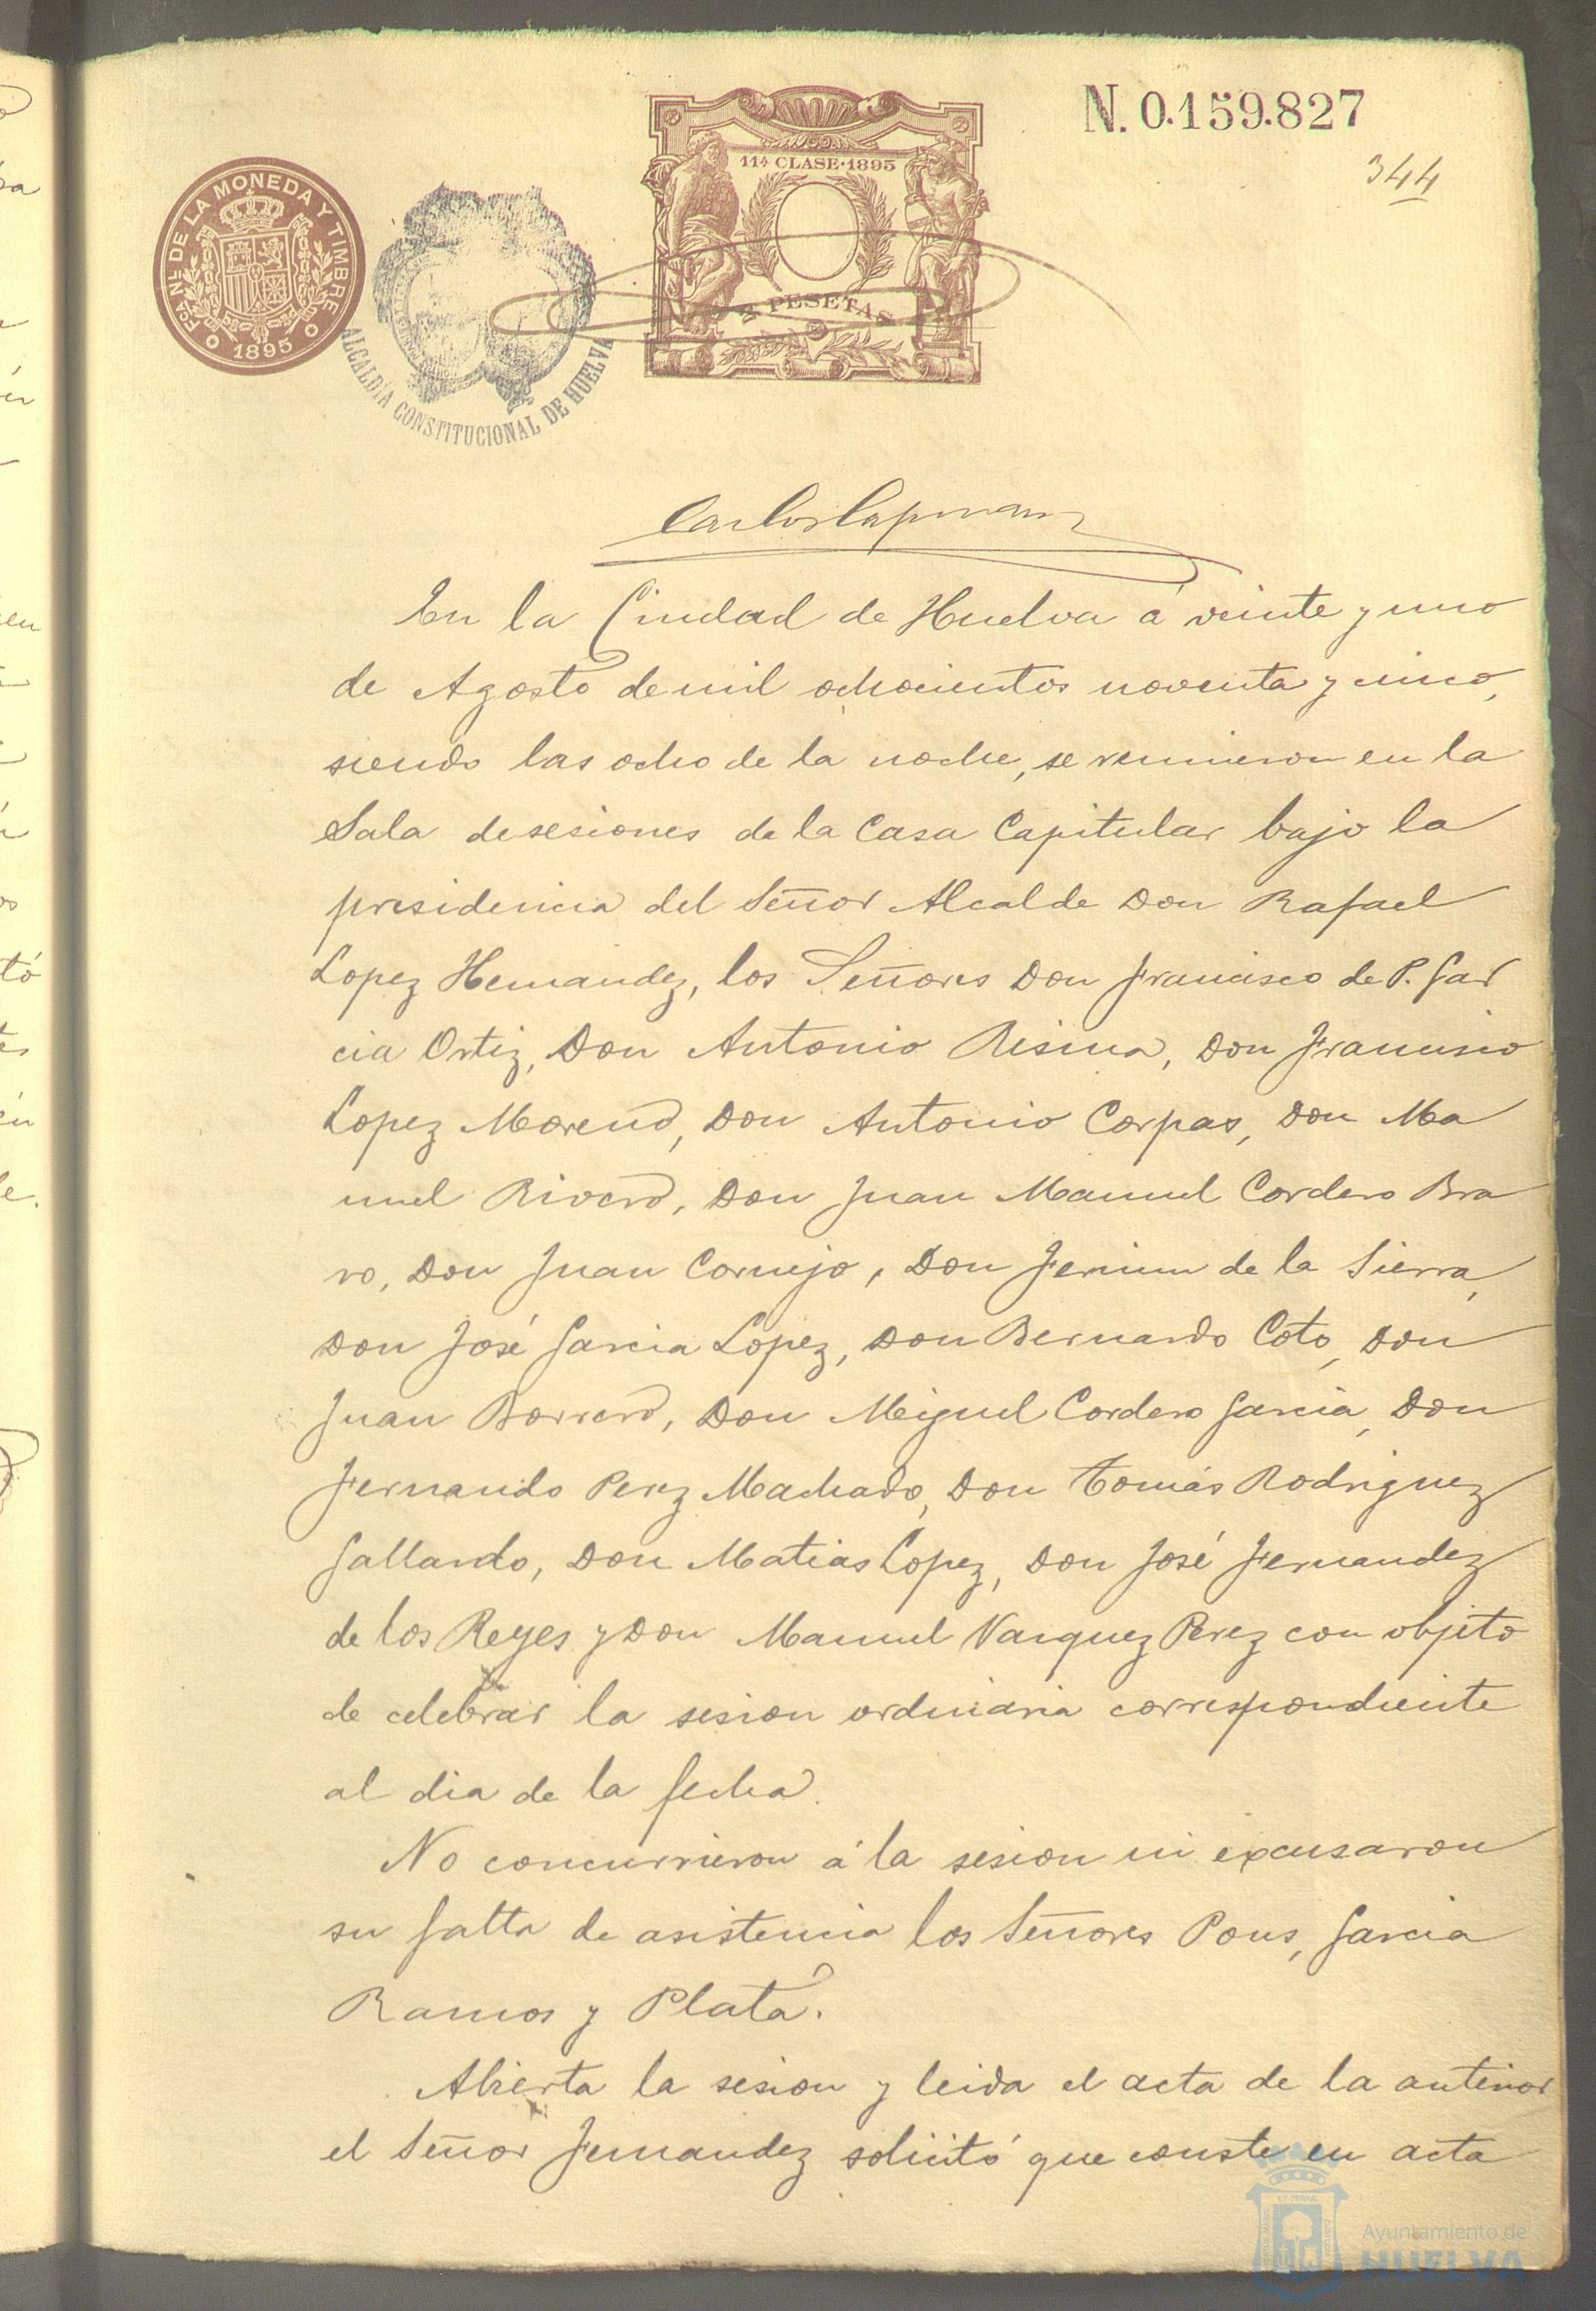 N. 0.159.827
344
11ª CLASE·1895
2 PESETAS
FCA NL DE LA MONEDA Y TIMBRE
1895
ALCALDÍA CONSTITUCIONAL DE HUELVA
Carlos
En la Ciudad de Huelva á veinte y uno
de Agosto de mil ochocientos noventa y cinco,
siendo las ocho de la noche, se reunieron en la
Sala de sesiones de la Casa Capitular bajo la
presidencia del Señor Alcalde Don Rafael
Lopez Hernandez, los Señores Don Francisco de P. Gar
cia Ortiz, Don Antonio Risina, Don Francisco
Lopez Moreno, Don Antonio Corpas, Don Ma
nuel Rivero, Don Juan Manuel Cordero Bra
vo, Don Juan Cornejo, Don Fermin de la Sierra,
Don José Garcia Lopez, Don Bernardo Coto, Don
Juan Borrero, Don Miguel Cordero Garcia, Don
Fernando Perez Machado, Don Tomás Rodriguez
Gallardo, Don Matias Lopez, Don José Fernandez
de los Reyes y Don Manuel Vazquez Perez con objeto
de celebrar la sesion ordinaria correspondiente
al dia de la fecha.
No concurrieron á la sesion ni excusaron
su falta de asistencia los Señores Pons, Garcia
Ramos y Plata.
Abierta la sesion y leida el acta de la anterior
el Señor Fernandez solicitó que conste en acta
Ayuntamiento de
HUELVA